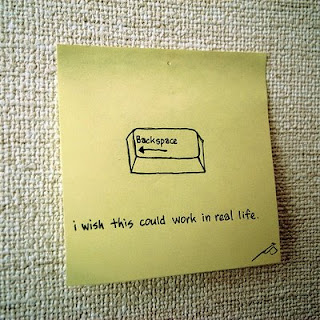 Backspace
i wish this could work in real life.